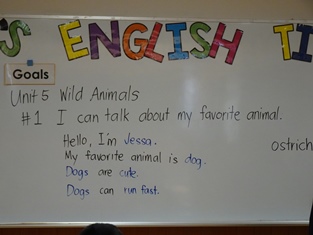 'S ENGLISH TI
Goals
Unit 5 Wild Animals
#1 I can talk about my favorite animal.
Hello, I'm Jessa.
My favorite animal is dog.
Dogs are cute.
Dogs can run fast.
ostrich